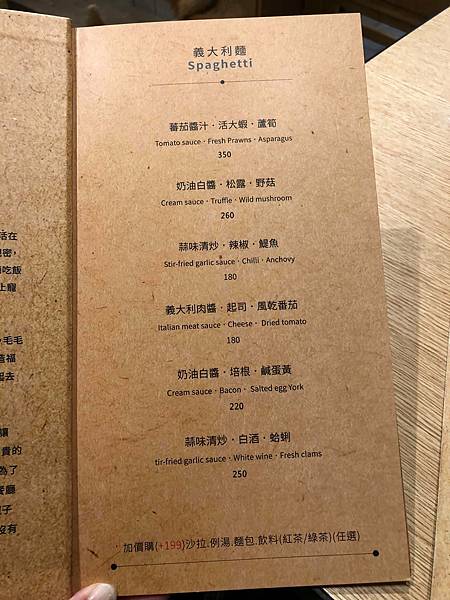 義大利麵
Spaghetti
蕃茄醬汁·活大蝦·蘆筍
Tomato sauce·Fresh Prawns·Asparagus
350
奶油白醬·松露·野菇
Cream sauce·Truffle·Wild mushroom
260
蒜味清炒·辣椒·鯷魚
Stir-fried garlic sauce·Chilli·Anchovy
180
義大利肉醬·起司·風乾番茄
Italian meat sauce·Cheese· Dried tomato
180
奶油白醬·培根·鹹蛋黃
Cream sauce·Bacon· Salted egg York
220
蒜味清炒·白酒·蛤蜊
tir-fried garlic sauce·White wine·Fresh clams
250
加價購(+199)沙拉.例湯.麵包.飲料(紅茶/綠茶)(任選)
活在
密,
吃飯
上寵
毛毛
福
去
讓
貴的
為了
餐廳
子
沒有